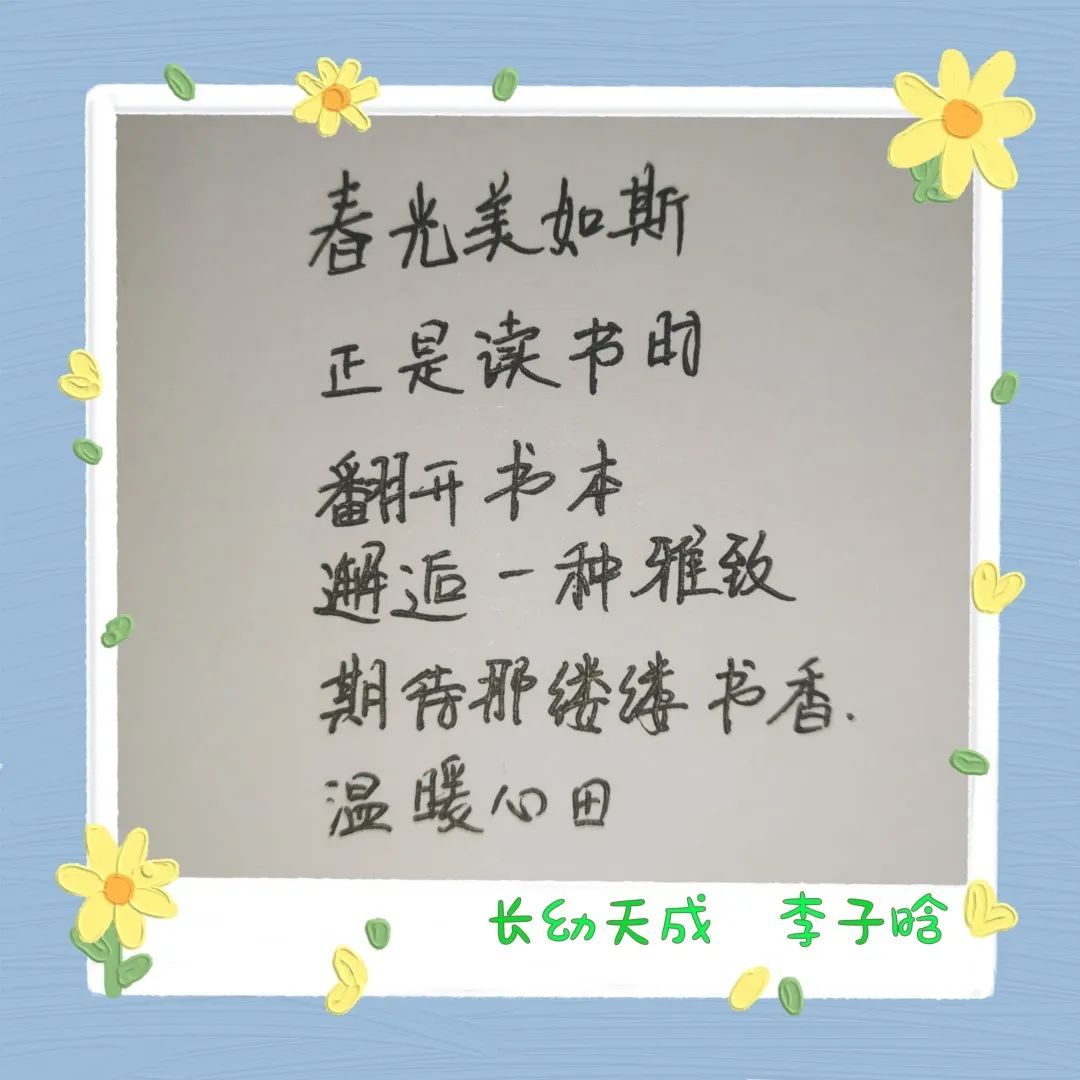 春光美如斯
正是读书时
翻开书本
邂逅一种雅致
期待那缕缕书香.
温暖心田
长幼天成 李子晗